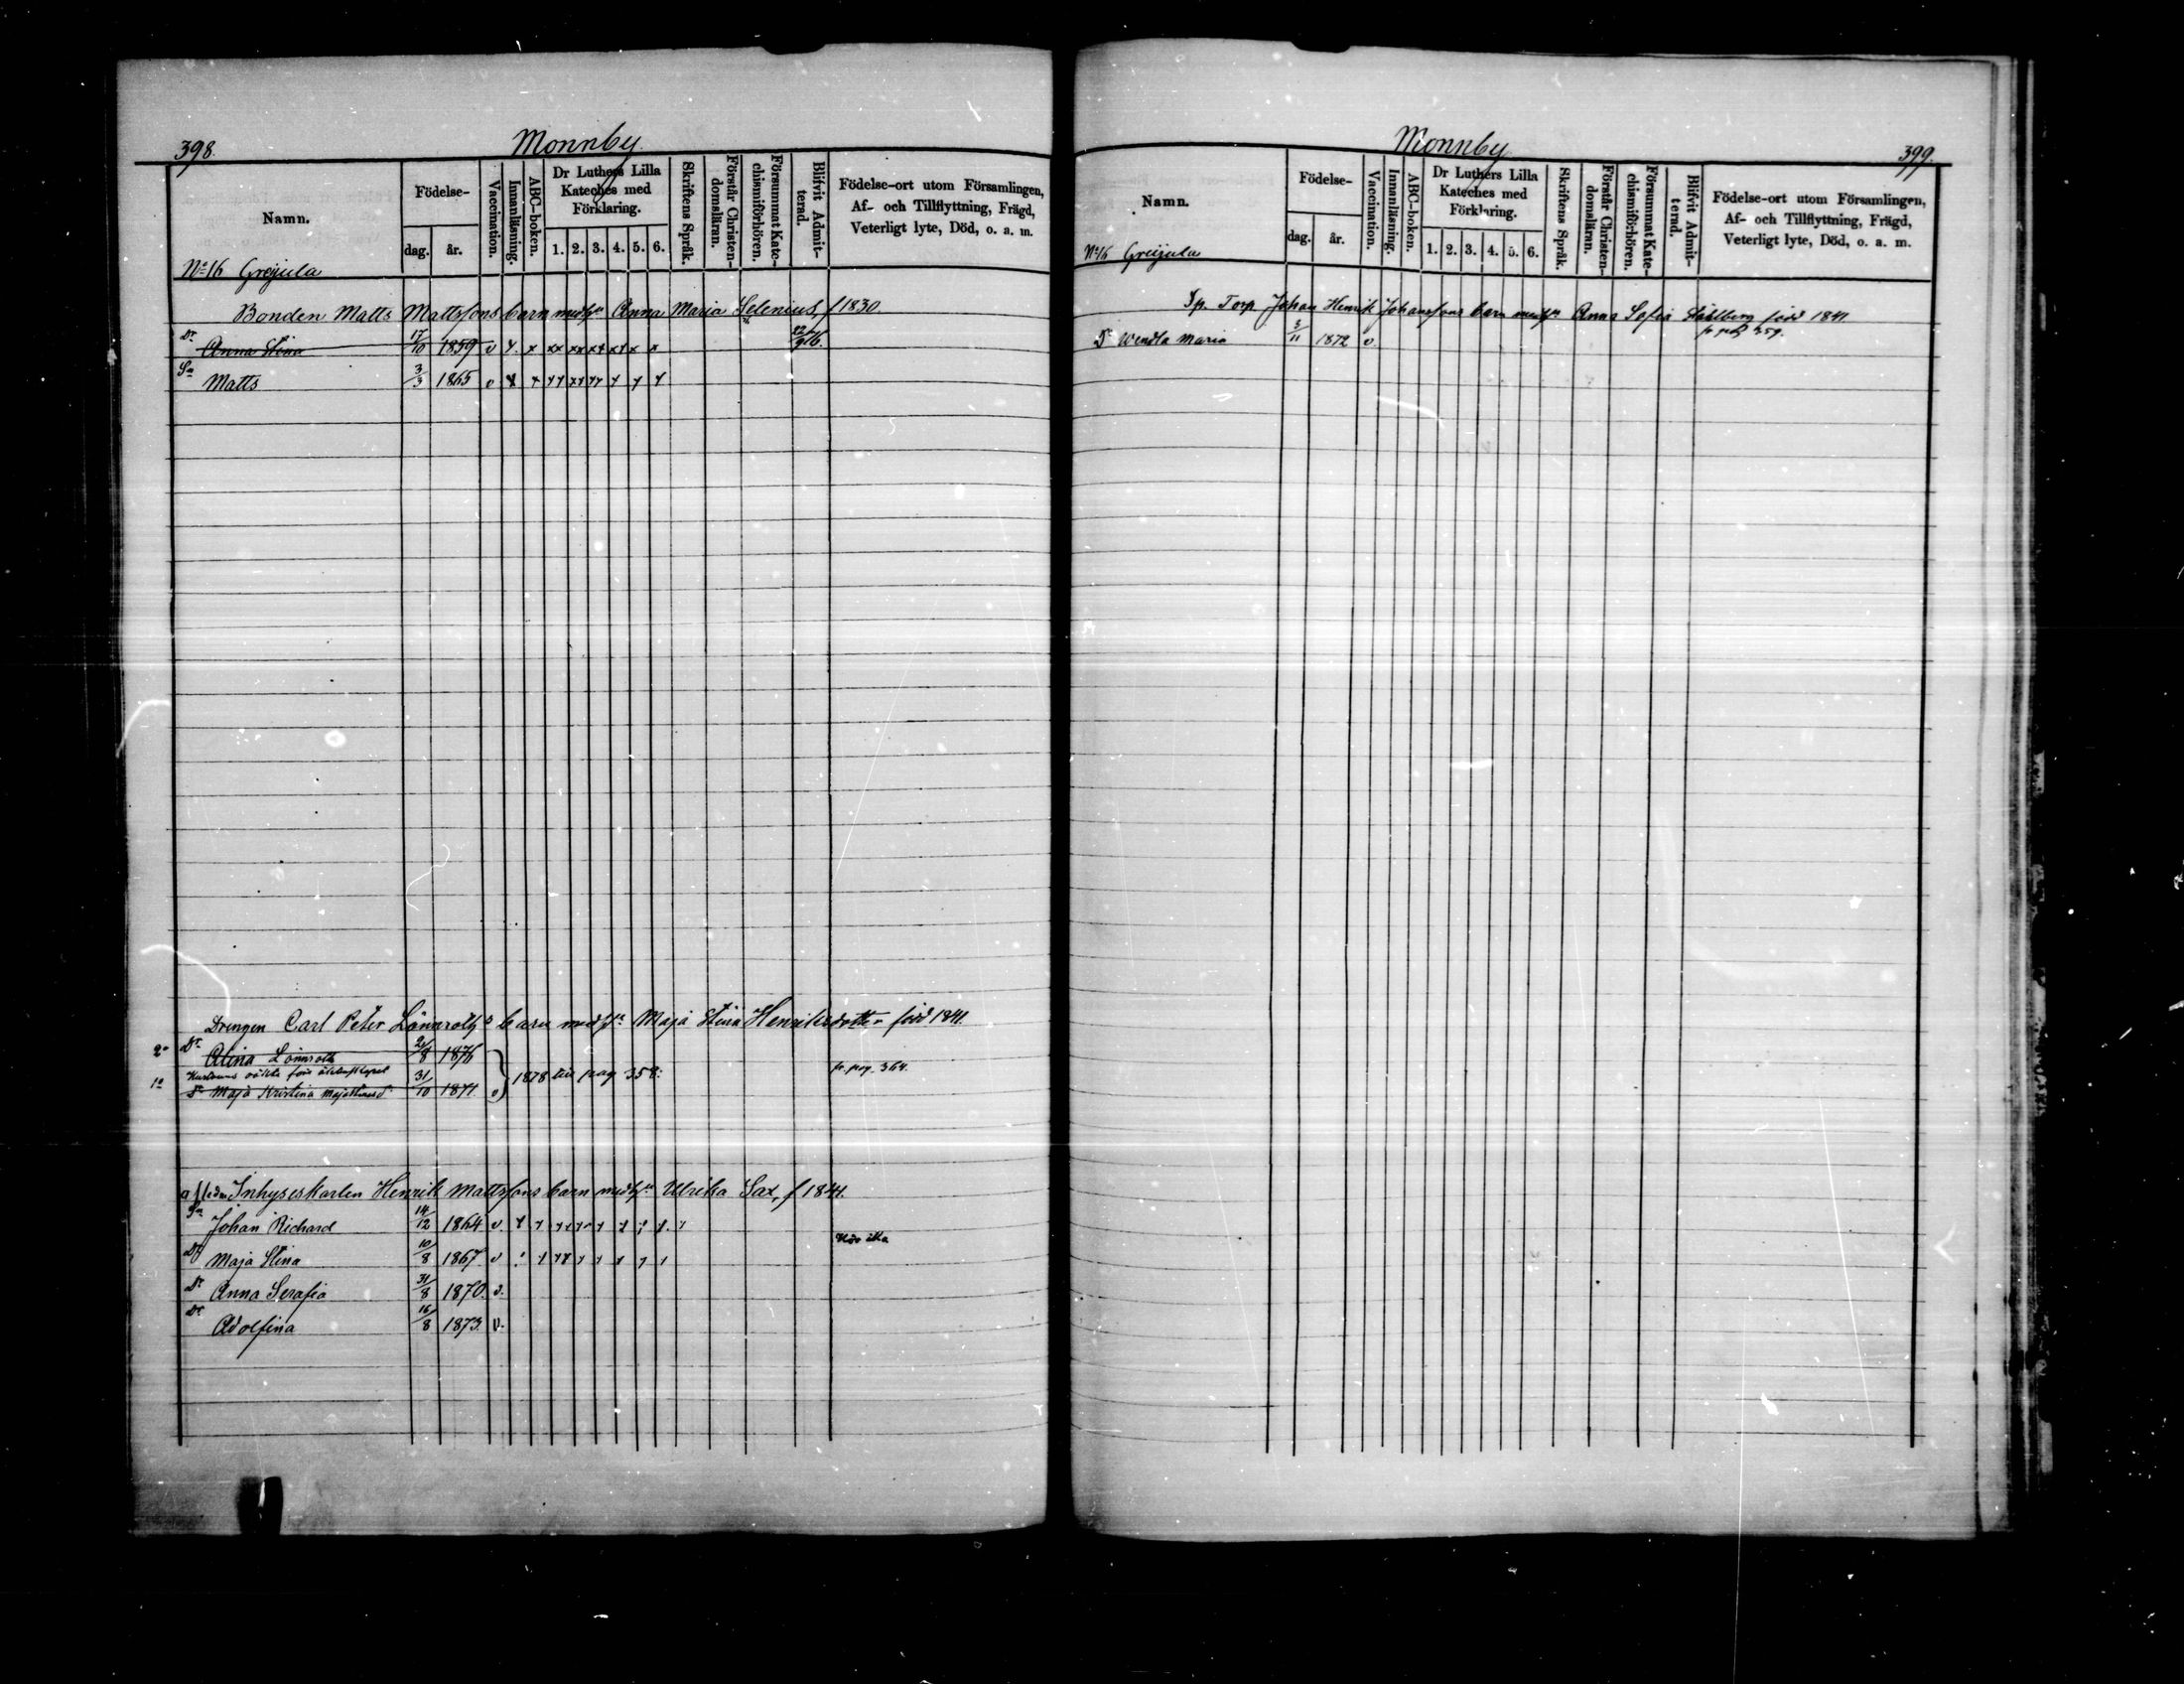 398.
Monnby
Namn.
Födelse-
dag.
år.
Vaccination.
Innanläsning.
ABC-boken.
Dr Luthers Lilla
Kateches med
Förklaring.
1. 2. 3. 4. 5. 6.
Skriftens Språk.
Förstår Christen-
domsläran.
Försummat Kate-
chismiförhören.
Blifvit Admit-
terad.
Födelse-ort utom Församlingen,
Af- och Tillflyttning, Frägd,
Veterligt lyte, Död, o. a. m.
No 16 Greijula
Bonden Matts Mattssons barn med h. Anna Maria Selenius, f 1830
Dr Anna Stina 17/10 1859 v x. x xx xx xx xx x x 22/9 76.
Sn Matts 3/3 1865 v x x xx xx xx x x x
Drengen Carl Peter Lönnroths barn med h. Maja Stina Henriksdotter född 1841.
2o Dr Alina Lönnroth 2/8 1876
1o Dr Maja Kristina 31/10 1871 v 1878 till pag 358. fr. pag. 364.
Inhyseskarlen Henrik Mattssons barn med h. Ulrika Sax, f 1841.
Sn Johan Richard 14/12 1864 v.
Dr Maja Stina 10/8 1867 v
Dr Anna Serafia 31/8 1870. v.
Dr Adolfina 16/8 1873. v.
Monnby
399.
Namn.
Födelse-
dag.
år.
Vaccination.
Innanläsning.
ABC-boken.
Dr Luthers Lilla
Kateches med
Förklaring.
1. 2. 3. 4. 5. 6.
Skriftens Språk.
Förstår Christen-
domsläran.
Försummat Kate-
chismiförhören.
Blifvit Admit-
terad.
Födelse-ort utom Församlingen,
Af- och Tillflyttning, Frägd,
Veterligt lyte, Död, o. a. m.
No 16 Greijula
Sp. Torp. Johan Henrik Johanssons barn med h. Anna Sofia Ståhlberg född 1841
Dr Wendla Maria 3/11 1872 v. fr pag 259.